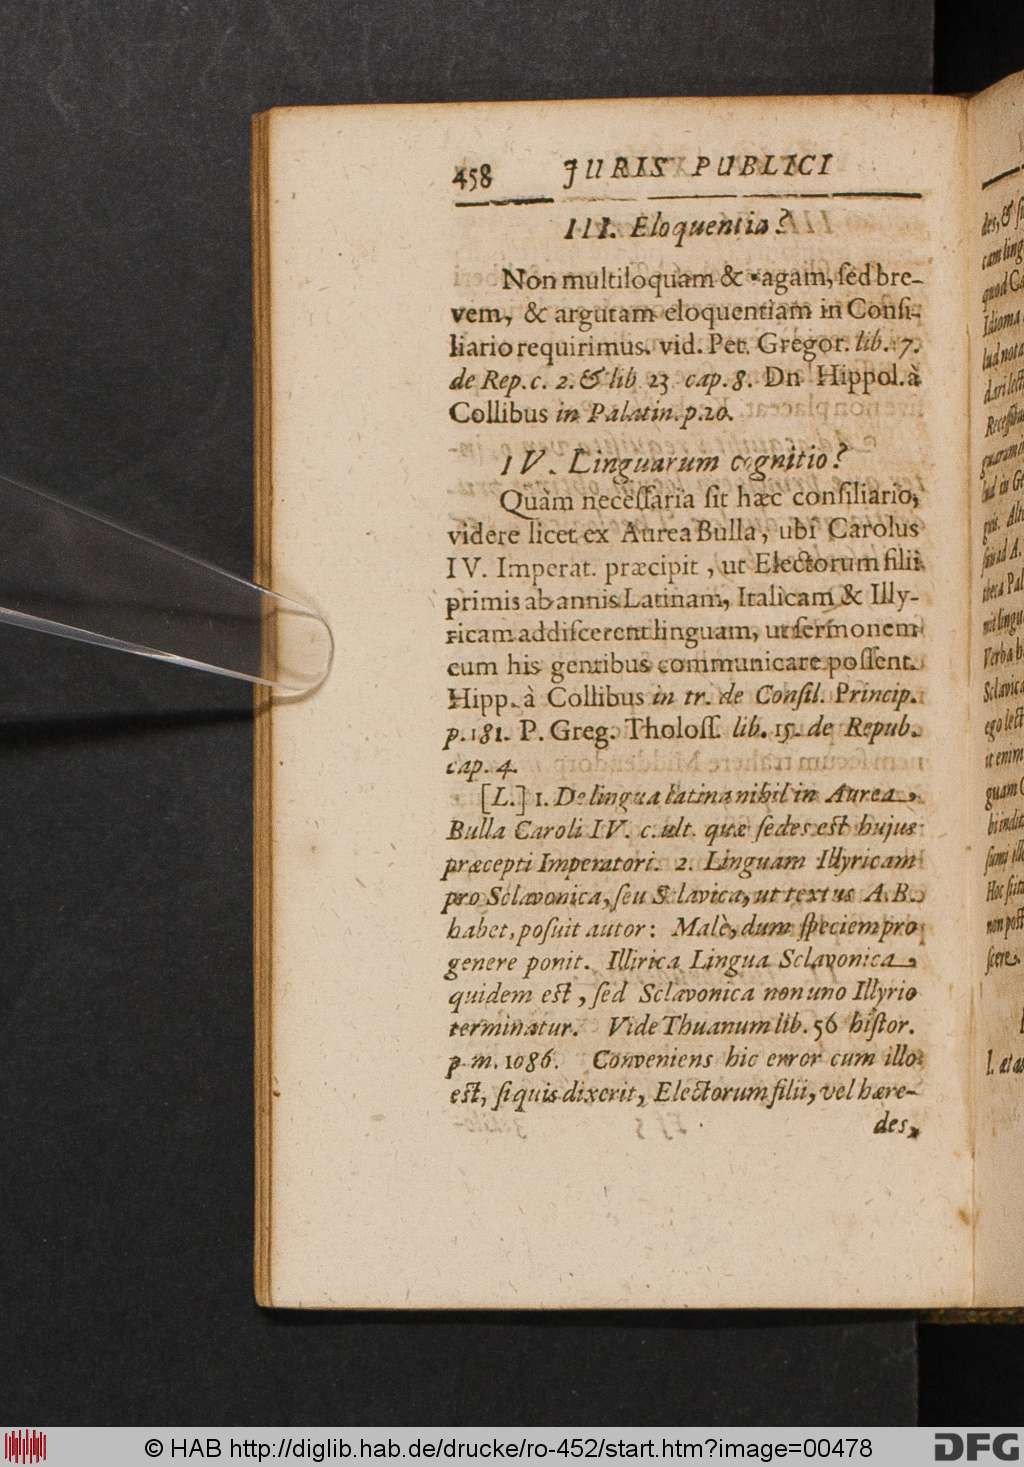 458 JURIS PUBLICI
III. Eloquentia?
Non multiloquam & vagam, ſed bre-
vem, & argutam eloquentiam in Conſi-
liario requirimus. vid. Pet. Gregor. lib. 7.
de Rep. c. 2. & lib 23 cap. 8. Dn Hippol. à
Collibus in Palatin. p. 20.
IV. Linguarum cognitio?
Quàm neceſſaria ſit hæc conſiliario,
videre licet ex Aurea Bulla, ubi Carolus
IV. Imperat. præcipit, ut Electorum filii
primis ab annis Latinam, Italicam & Illy-
ricam addiſcerent linguam, ut ſermonem
cum his gentibus communicare poſſent.
Hipp. à Collibus in tr. de Conſil. Princip.
p. 181. P. Greg. Tholoſſ. lib. 15. de Repub.
cap. 4.
[L.] 1. De lingua latina nihil in Aurea
Bulla Caroli IV. c. ult. quæ ſedes est hujus
præcepti Imperatori. 2. Linguam Illyricam
pro Sclavonica, ſeu Sclavica, ut textus A. B.
habet, poſuit autor: Malè, dum ſpeciem pro
genere ponit. Illirica Lingua Sclavonica
quidem est, ſed Sclavonica non uno Illyrio
terminatur. Vide Thuanum lib. 56 hiſtor.
p. m. 1086. Conveniens hic error cum illo
est, ſi quis dixerit, Electorum filii, vel hære-
des,
des, & ſi
cam ling
quod Ca
Idioma
lud nota
dari lect
Receſſibus
lud in Ge
guis.
ſuis ad A.
theca Pal
nit lingu
Verba b
Sclavica
ego lect
it enim
guam C
bi indit
ſumi illo
Hoc ſcitu
non poſſ
ſcere.
I. æt
© HAB http://diglib.hab.de/drucke/ro-452/start.htm?image=00478
DFG